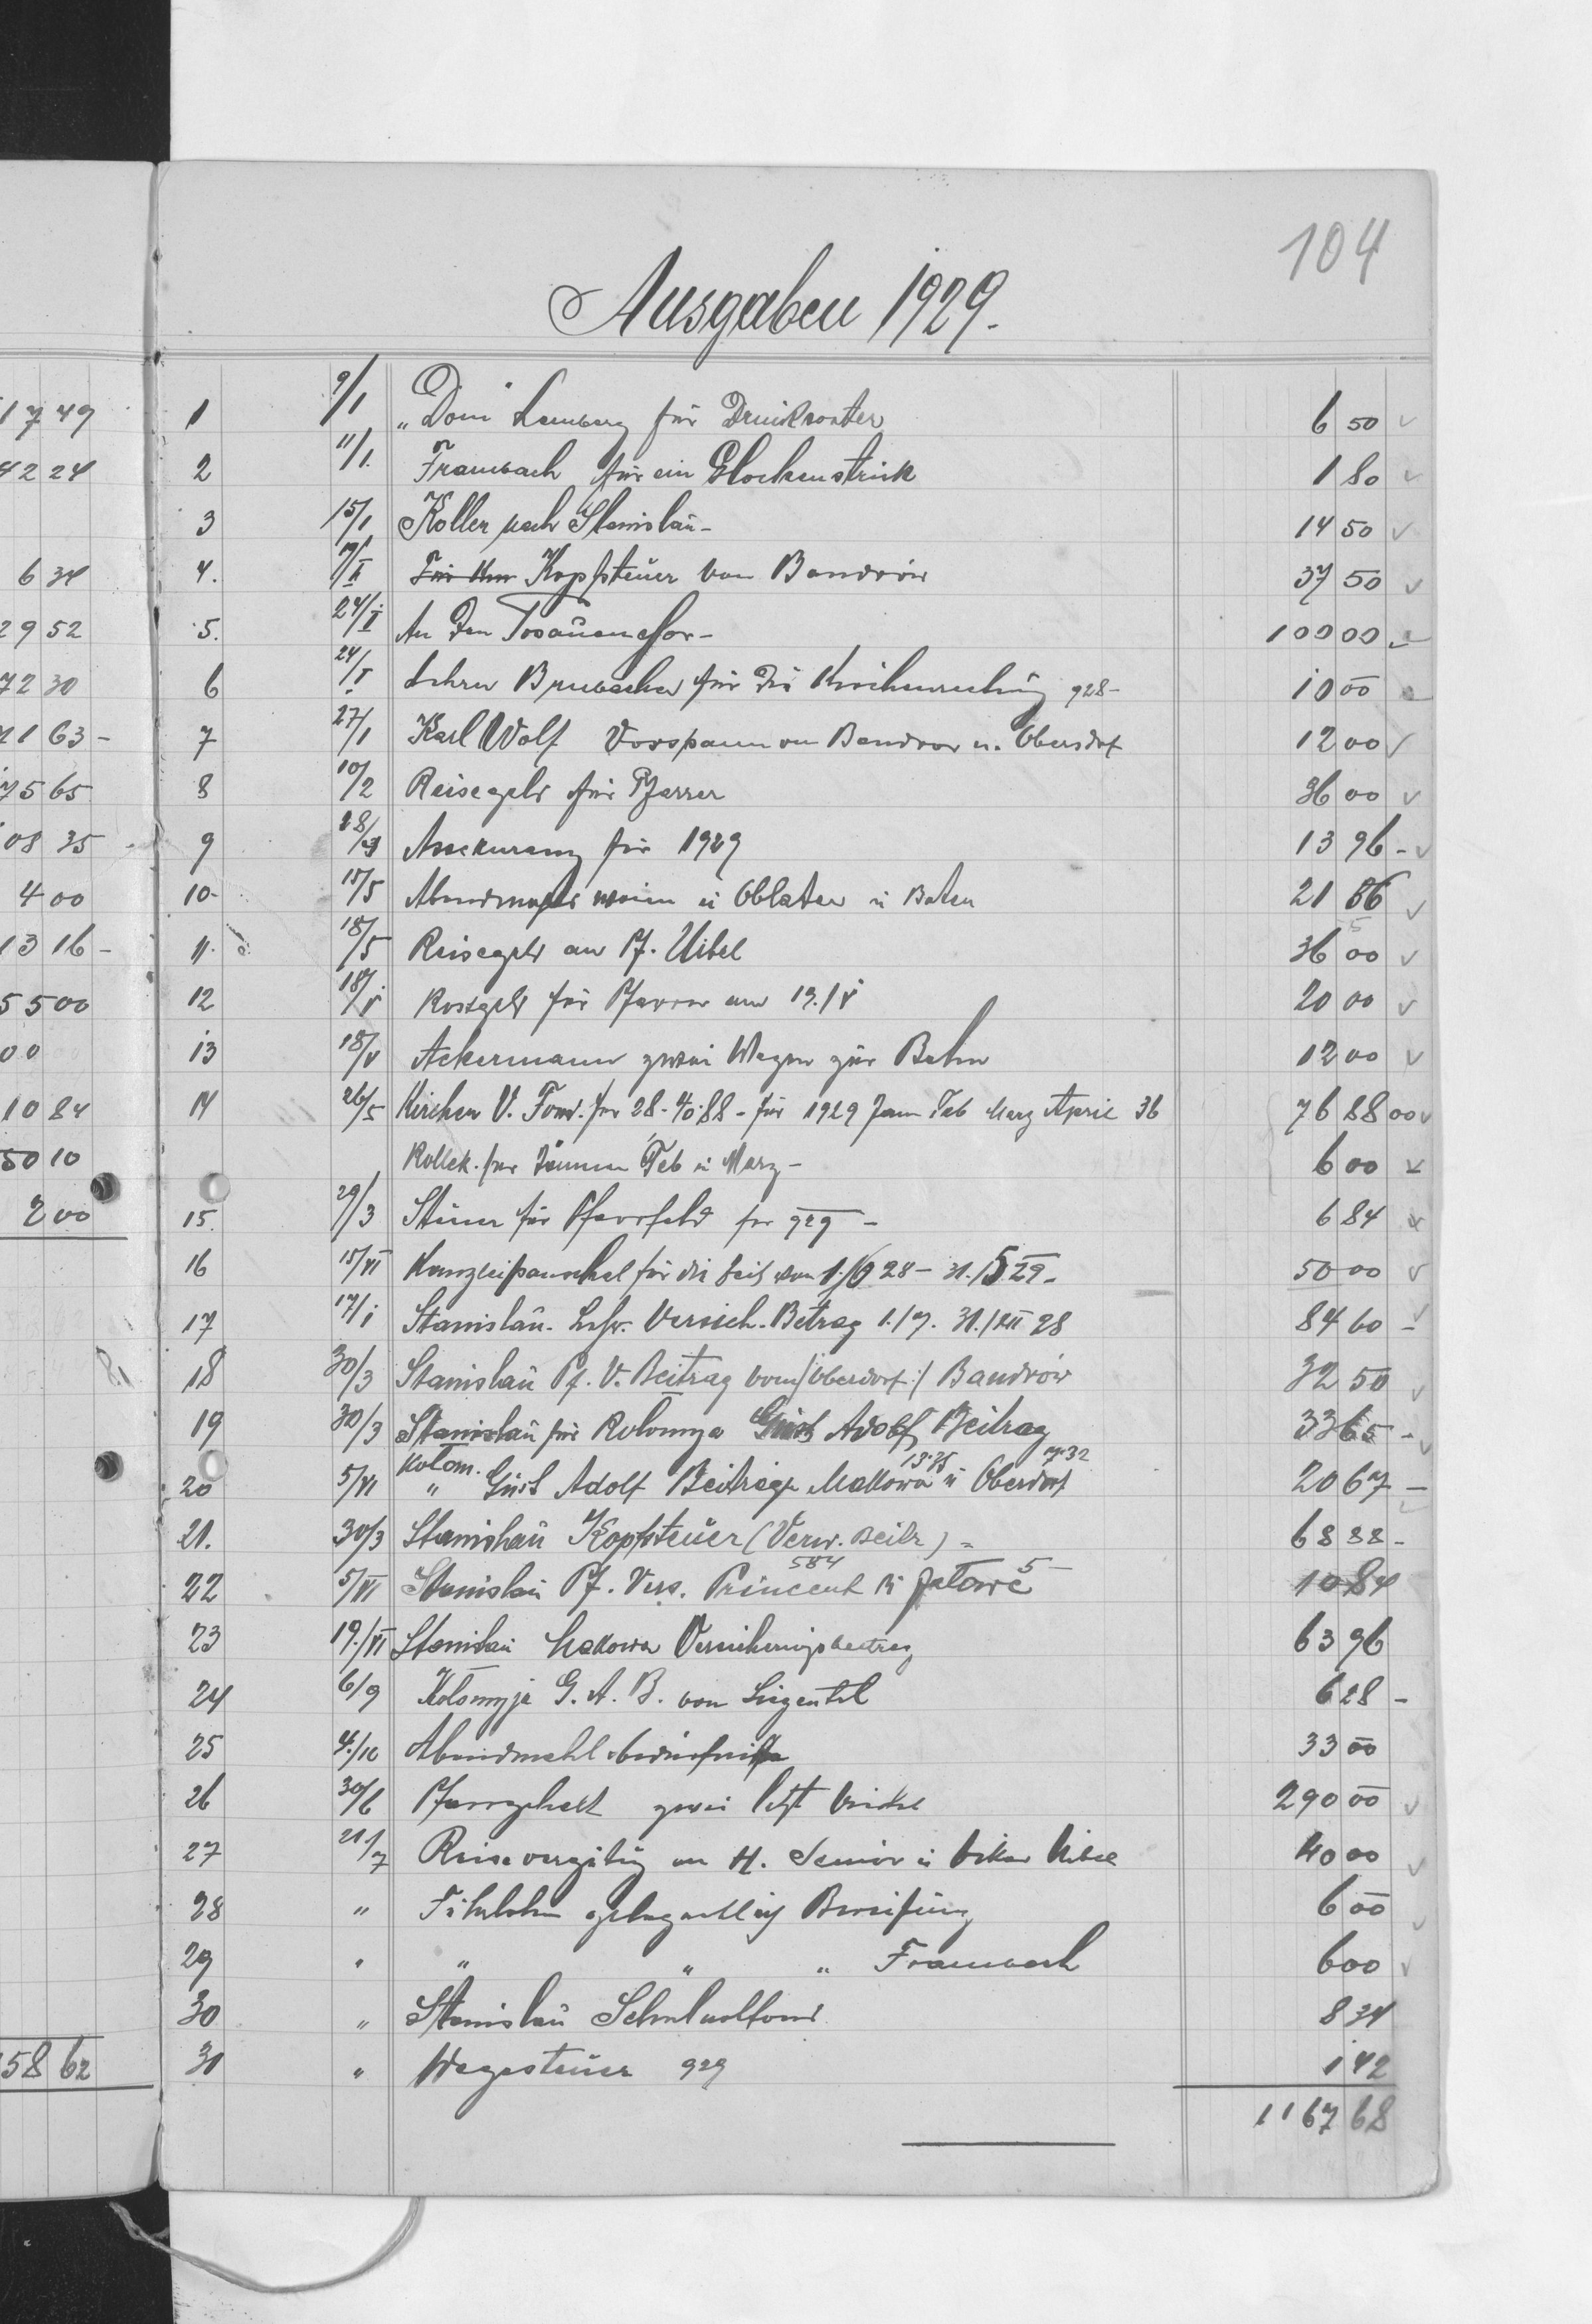 104
Ausgaben 1929.
1749
1 9/1 "Dom" Lemberg für Drucksorten 6 50
4224
2 11/1. Frambach für ein Glockenstrick 1 80
3 15/1 Koller nach Stanislau- 14 50
634
4. Kopfsteuer von Bandrów 37 50
2952
5. 24/I An den 100 00
7230
6 24/I Lehrer für die 928- 10 00
7163-
7 27/1 Karl Wolf Vorspann von Bandrow u. Obersdorf 12 00
7565
8 10/2 Reisegeld für Pfarrer 36 00
08 35
9 Assekuranz für 1929 13 96-
400
10- 15/5 Abendmahls wein u Oblaten u Boten 21 56
1316-
11. 18/5 Reisegeld an Pf. Uibel 36 00
5500
12 18/V Kostgeld für Pfarrer am 19./V 20 00
00
13 18/V Ackermann zwei Wagen zur Bahn 12 00
1084
14 26/5 Kirchen V. Fond. für 28-40.88- für 1929 Jann Feb Marz April 36 76 88 00
5010
Kollek. für Jänner Feb u Marz- 6 00
200
15. 29/3 Steuer für Pfarrfeld für 929- 6 84
16 15/VI Kanzleipauschal für die Zeit vom 1./6 28- 31./5 29- 50 00
17 17/1 Stanislau- Versich. Betrag 1./7. 31./XII 28 84 60-
18 30/3 Stanislau Pf. V. Beitrag vom /:Oberdorf:/ Bandrów 32 50
19 30/3 Stanislau für Kolomya Gust Adolf Beitrag 33 65-
13.35 7.32
20 5/VI Kolom. " Gust Adolf Beiträge Makowa u Oberdorf 20 67-
21. 30/3 Stanislau Kopfsteuer (Verw. Beitr) = 68 88-
584 5
22 5/VI Stanislau Pf. Vers. Princent u Jatowe 10 84
23 19./VI Stanislau Makowa Versicherungsbeitrag 63 96
24 6/9 Kolomyja G. A. B. von 6 28-
25 4./10 33 00
26 30/6 Pfarrgehalt zwei 290 00
27 21/7 Reisevergütig an H. Senior u Vikar Uibel 40 00
28 " Fuhrlohn gelegentlich 6 00
29 " " " " Frambach 6 00
30 " Stanislau 8 34
5862
31 " Wegesteuer 929 1 42
1167 68